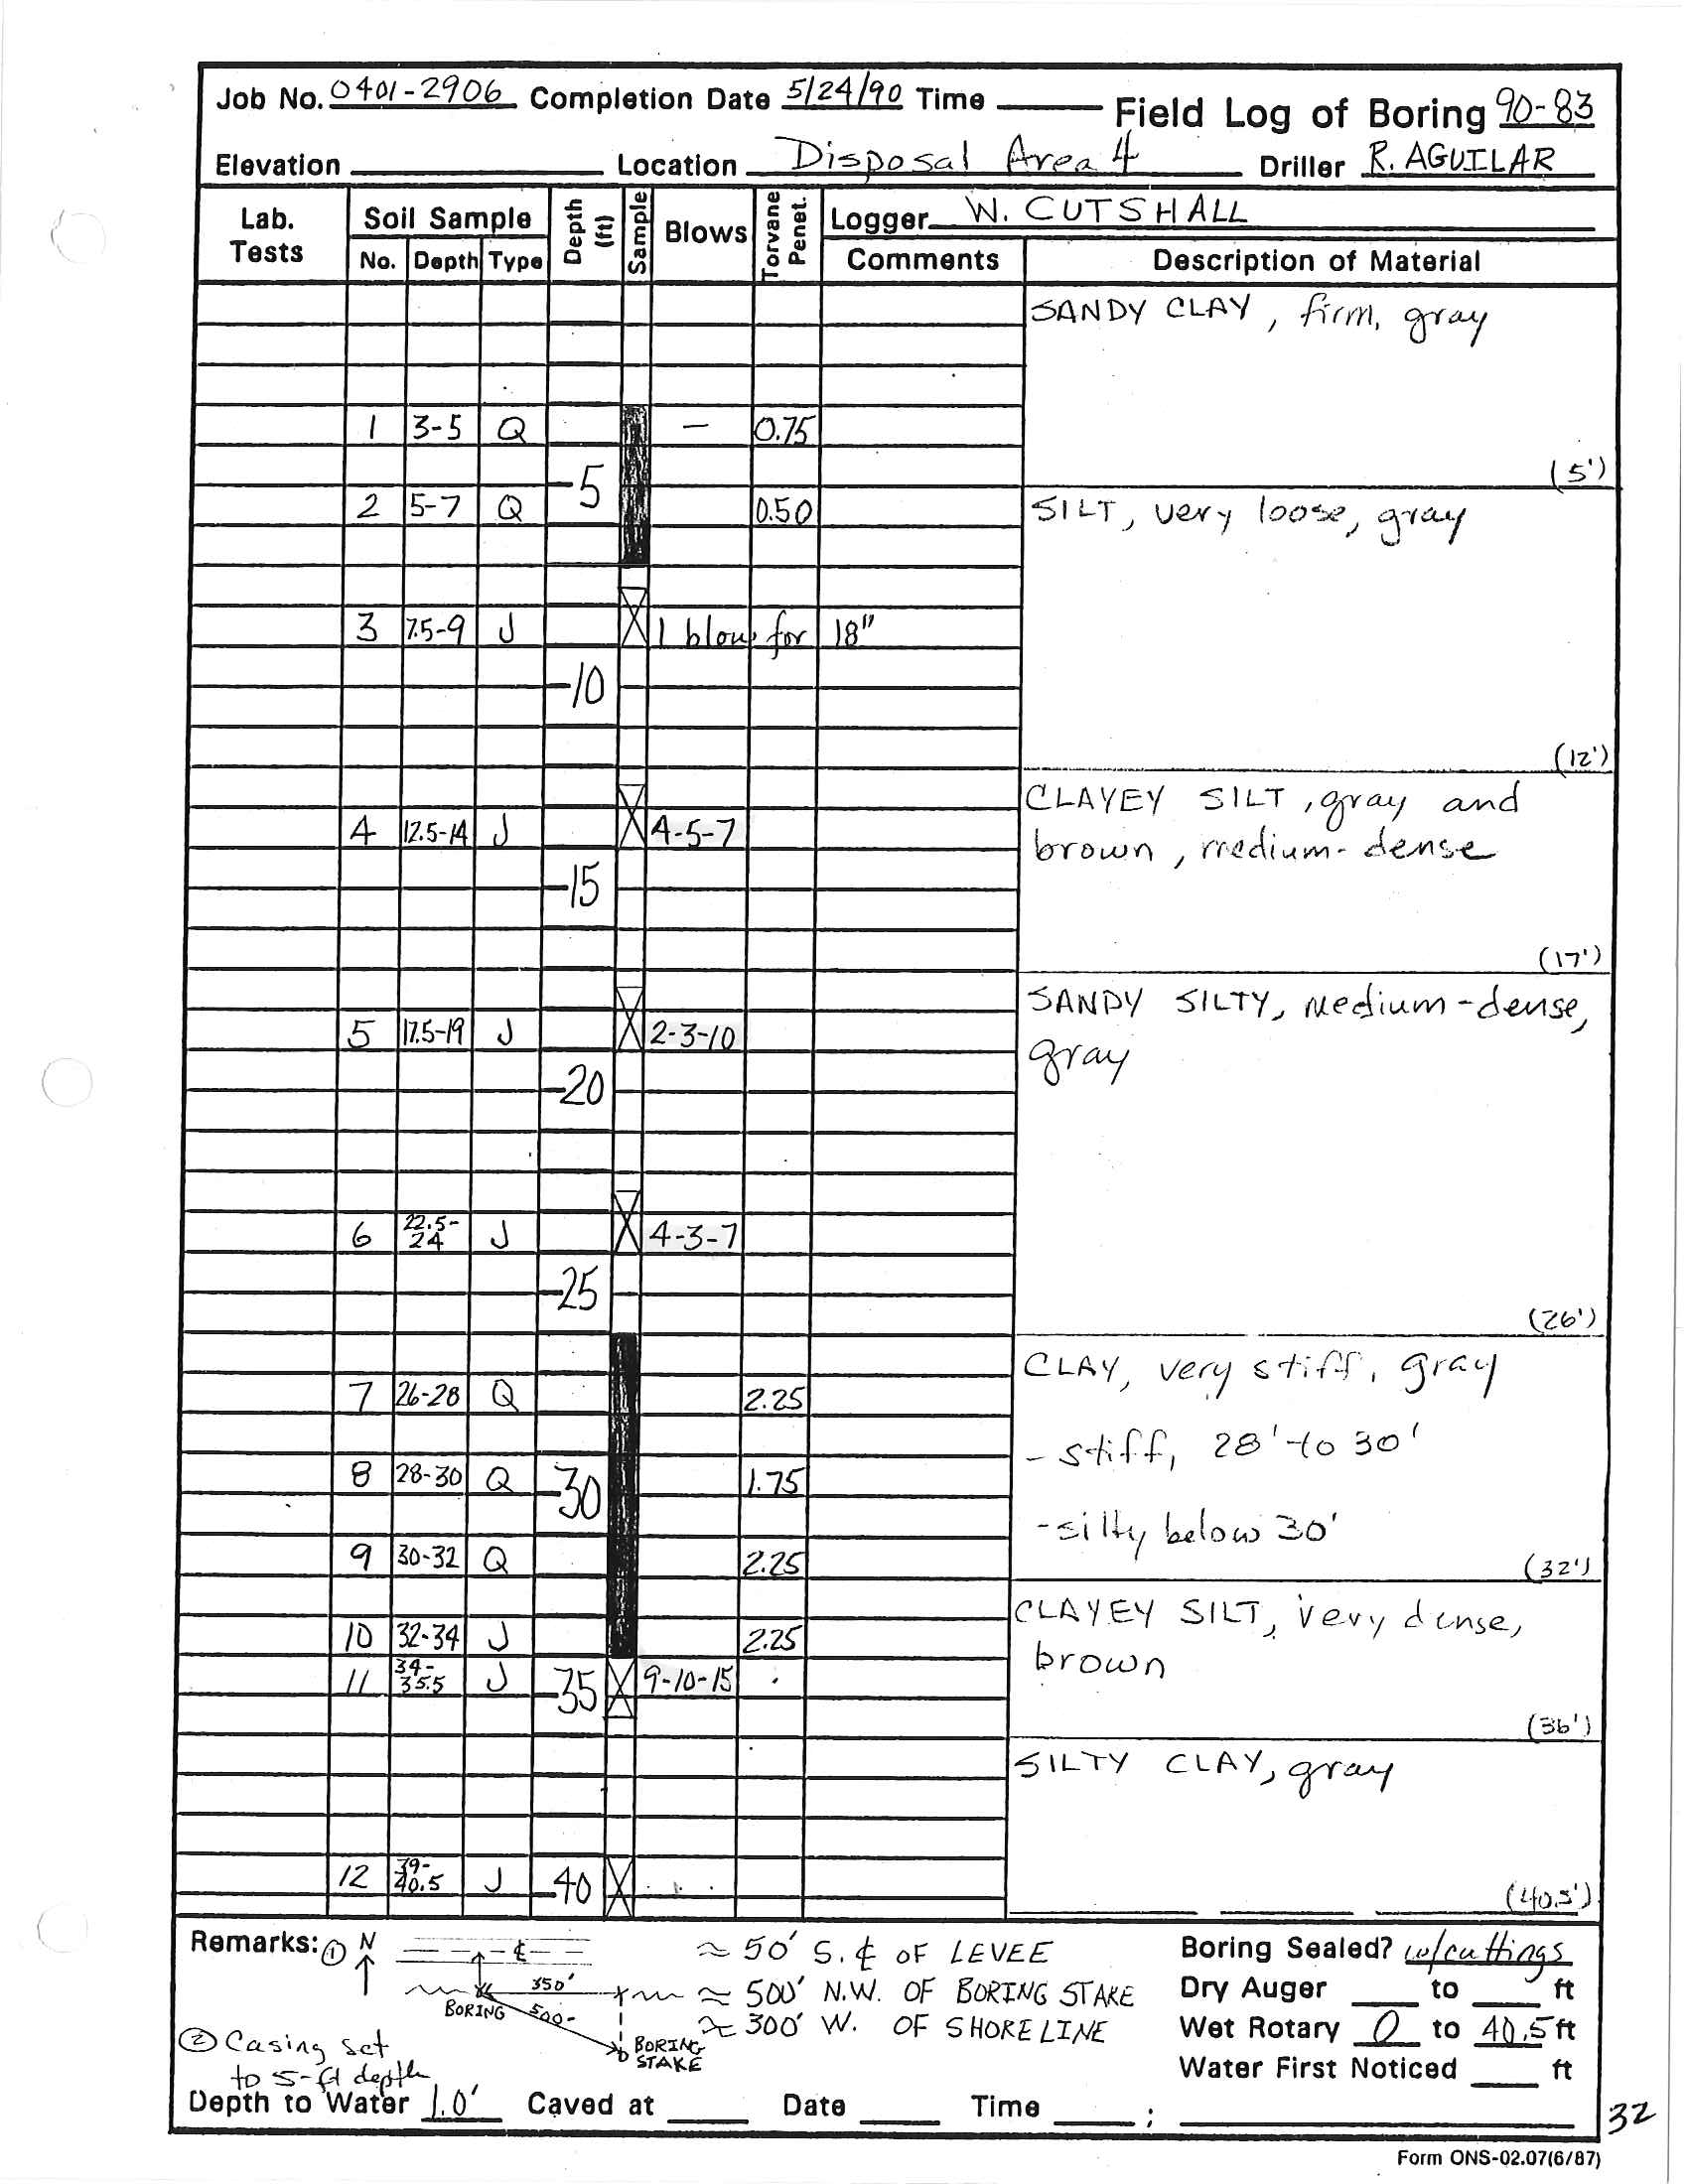 Job No. 0401-2906 Completion Date 5/24/90 Time Field Log of Boring 90-83
Elevation Location Disposal Area 4 Driller R. AGUILAR
Lab. Tests Soil Sample Depth (ft) Sample Blows Torvane Penet. Logger W. CUTSHALL
No. Depth Type Comments Description of Material
SANDY CLAY, firm, gray
1 3-5 Q – 0.75
(5')
-5
2 5-7 Q 0.50 SILT, very loose, gray
3 7.5-9 J 1 blow for 18"
-10
(12')
CLAYEY SILT, gray and
4 12.5-14 J 4-5-7 brown, medium-dense
-15
(17')
SANDY SILTY, medium-dense,
5 17.5-19 J 2-3-10 gray
-20
6 22.5-24 J 4-3-7
-25
(26')
CLAY, very stiff, gray
7 26-28 Q 2.25
- stiff, 28' to 30'
8 28-30 Q -30 1.75
- silty below 30'
9 30-32 Q 2.25 (32')
CLAYEY SILT, very dense,
10 32-34 J 2.25 brown
11 34-35.5 J -35 9-10-15
(36')
SILTY CLAY, gray
12 39-40.5 J -40 (40.5')
Remarks: ① N ℄ ≈ 50' S. ℄ OF LEVEE Boring Sealed? w/cuttings
350' ≈ 500' N.W. OF BORING STAKE Dry Auger to ft
BORING 500- ≈ 300' W. OF SHORELINE Wet Rotary 0 to 40.5 ft
BORING STAKE
② Casing set Water First Noticed ft
to 5-ft depth
Depth to Water 1.0' Caved at Date Time ;
32
Form ONS-02.07(6/87)